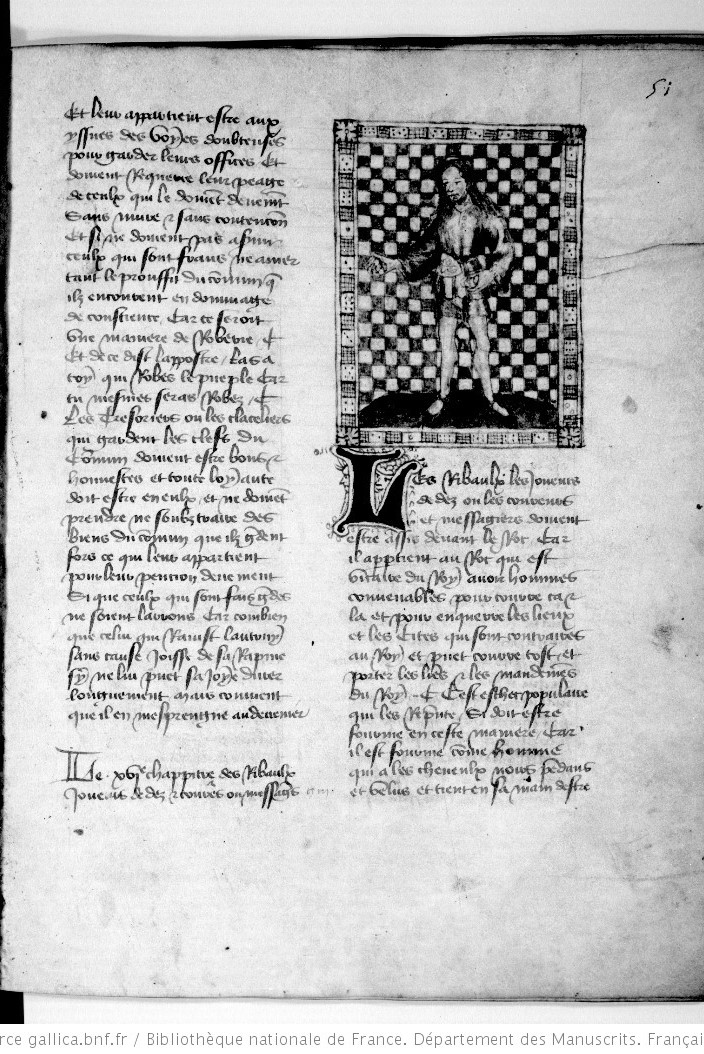 51
Et leur appartient estre aux
yssues des voyes doubteuses
pour garder leurs offices Et
doivent Requerre leur peage
de ceulx qui le doivēt devemēt
Sans Inure ⁊ sans contencōn
Et si ne doivent pas
ceulx qui sont frans ne amer
tāt le prouffit du cōmun q̄
ilz encourent en dommage
de conscience Car ce seroit
vne maniere de Roberie
Et de ce dist lappostre
toy qui Robes le pueple Car
tu mesmes seras Robez
Les Tresoriers ou les claceliers
qui gardent les clefs du
Cōmun doivent estre bons ⁊
honnestes et toute loyaute
doit estre en eulx et ne doivēt
prendre ne soubztraire des
biens du comun que ilz gardent
fors ce qui leur appartient
pour leur pencion devement
Si que ceulx qui sont
ne soient larrons Car combien
que celui qui Ravist lautruy
sans cause Joisse de sa Rapine
sy ne lui puet sa Joye durer
longuement mais convient
que il en mesprengne au derrenier
Le xvi chappitre des Ribaulx
Joueurs de dez ⁊ coureurs ou messaḡs
Les Ribaulx les Joueurs
de dez ou les coureurs
et messagiers doivent
estre assis devant le Rot Car
il apptient au Rot qui est
vicaire du Roy avoir hommes
convenables pour courre ca ⁊
la et pour enquerre les lieux
et les Cites qui sont contraires
au Roy et puet courre tost et
porter les lr̄es ⁊ les mandemēs
du Roy Cest eschet populaire
qui les Repñte Si doit estre
fourme en ceste maniere Car
il est fourme cōme homme
qui a les cheveulx noirs pendans
et velus et tient en sa main destre
rce gallica.bnf.fr / Bibliothèque nationale de France. Département des Manuscrits. Françai